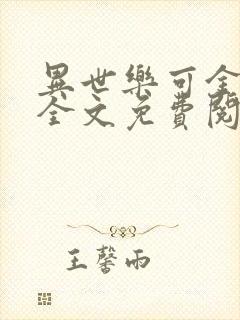 異世樂可全
全文免費閱
王馨雨